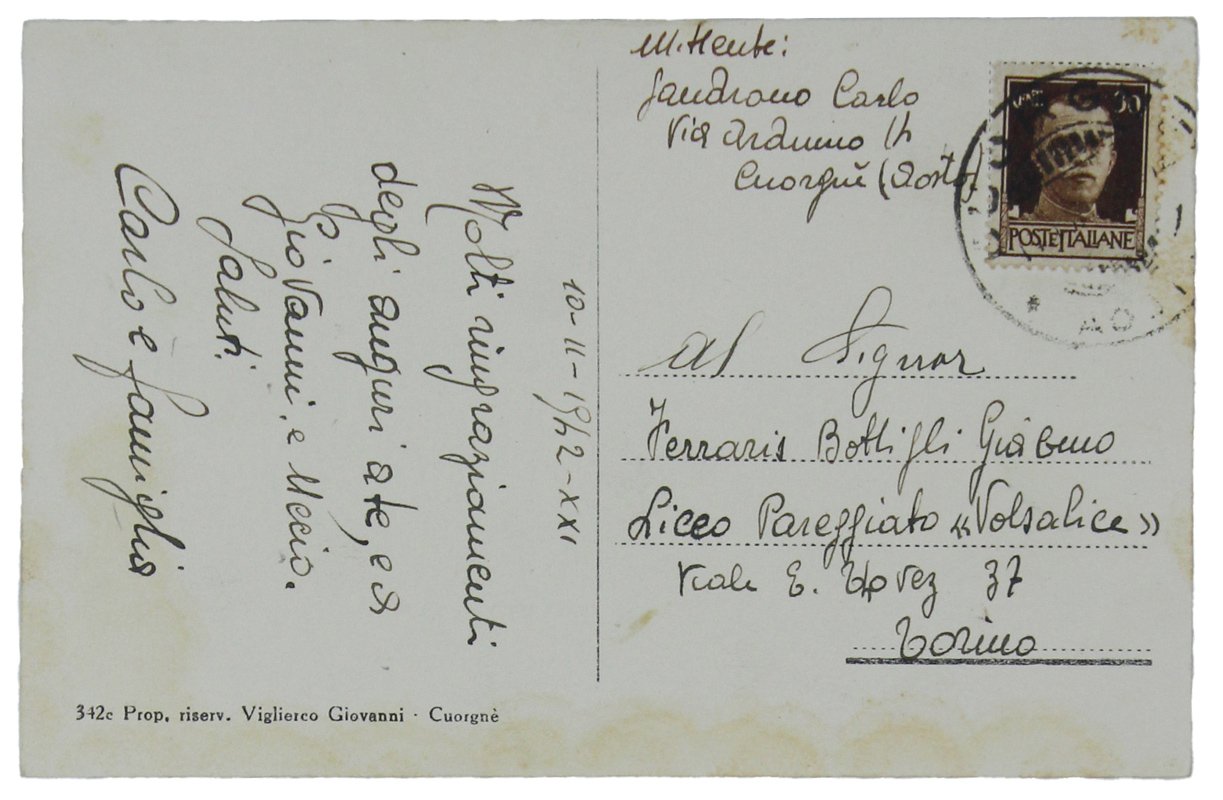 10-11-1942-XXI
Molti ringraziamenti
degli auguri a te, e a
Giovanni e Meccio.
Saluti
Carlo e famiglia
Mittente:
Sandrono Carlo
Via Arduino 14
Cuorgnè (Aosta)
POSTE ITALIANE
AO
Al Signor
Ferraris Bottigli Giacomo
Liceo Pareggiato «Valsalice»
Viale E. Thovez 37
Torino
342c Prop. riserv. Viglierco Giovanni - Cuorgnè